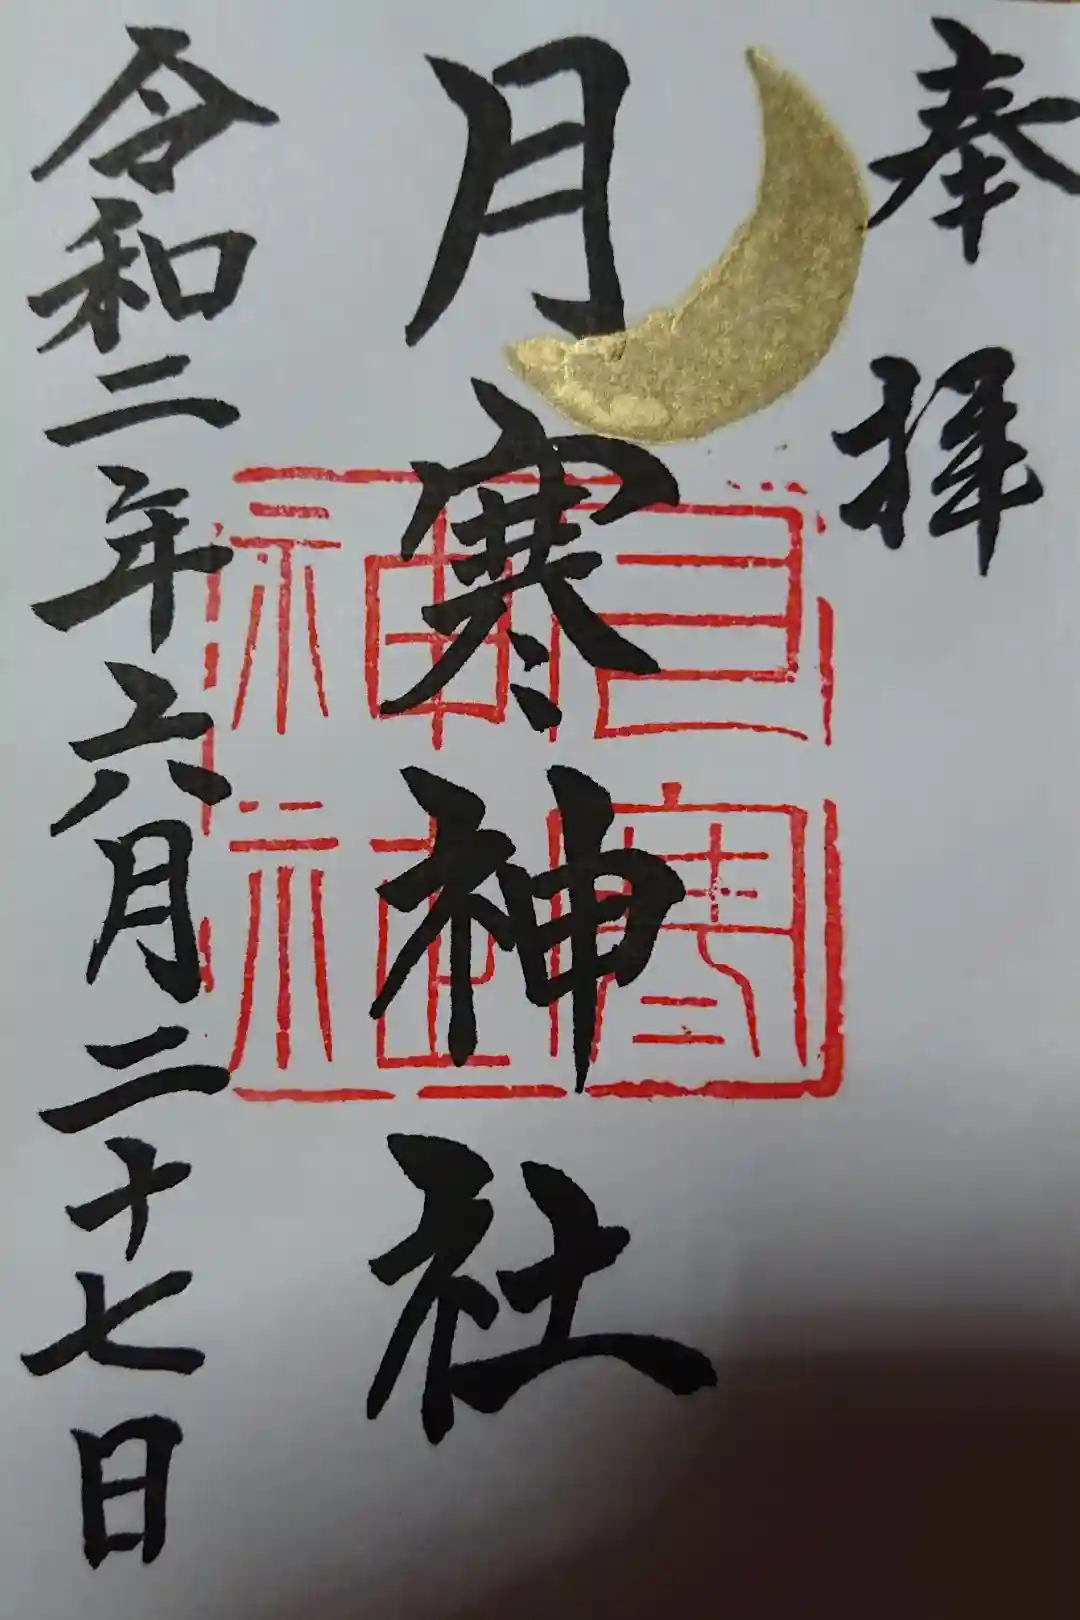 奉拝
月寒神社
月寒神社
令和二年六月二十七日